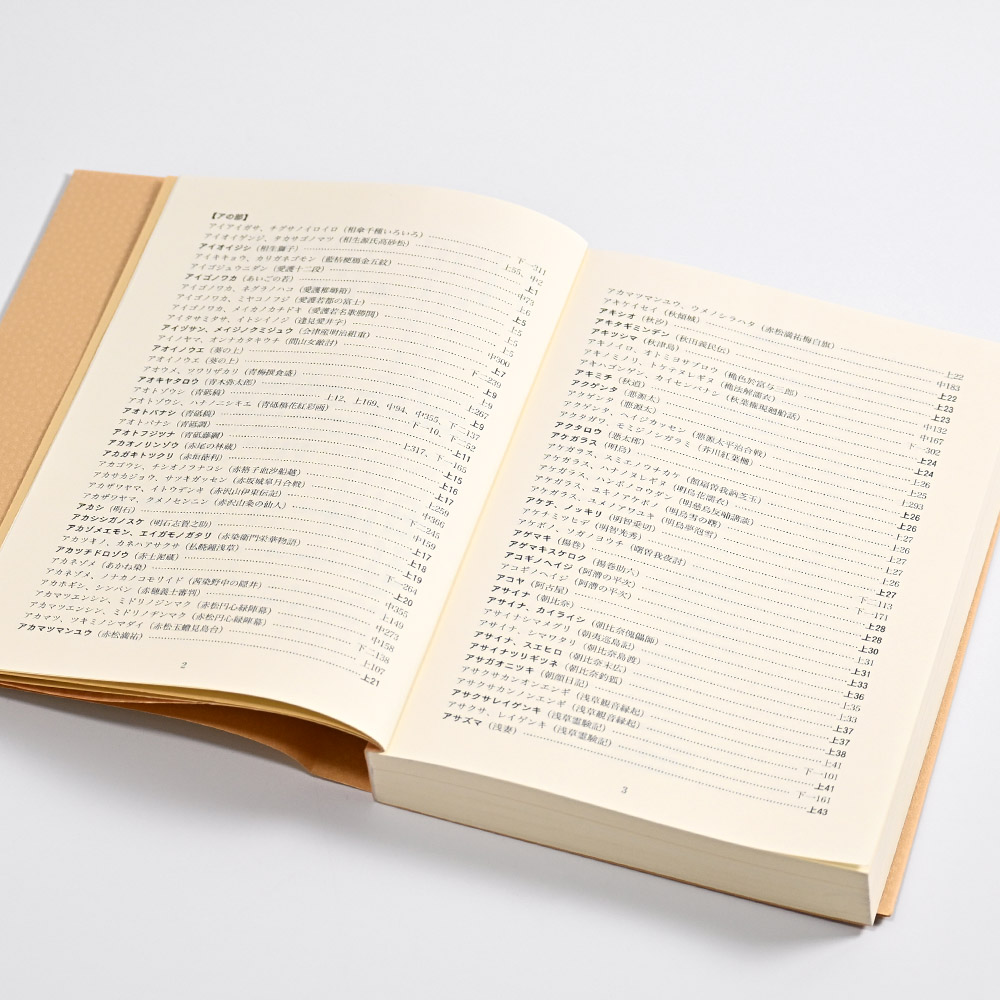 【アの部】
アイアイガサ、チグサノイロイロ（相傘千種いろいろ） 下—311
アイオイゲンジ、タカサゴノマツ（相生源氏高砂松） 上55、中2
アイオイジシ（相生獅子） 上1
アイキキョウ、カリガネゴモン（藍桔梗雁金五紋） 中73
アイゴジュウニダン（愛護十二段） 上6
アイゴノワカ（あいごの若） 上5
アイゴノワカ、ネグラノハコ（愛護稚塒箱） 上5
アイゴノワカ、ミヤコノフジ（愛護若都の富士） 上5
アイゴノワカ、メイカノカチドキ（愛護若名歌勝鬨） 上5
アイタサミタサ、イトシイノジ（逢見愛井字） 中306
アイヅサン、メイジノクミジュウ（会津産明治組重） 上7
アイノヤマ、オンナカタキウチ（間山女敵討） 下—239
アオイノウエ（葵の上） 上8
アオイノウエ（葵の上） 上9
アオウメ、ツワリザカリ（青梅撰食盛） 上267
アオキヤタロウ（青木弥太郎） 上9
アオトゾウシ（青砥稿） 上12、上169、中94、中355、下—137
アオトゾウシ、ハナノニシキエ（青砥稿花紅彩画） 下—10、下—52
アオトバナシ（青砥稿） 上11
アオトバナシ（青砥調） 上317、下—165
アオトフジツナ（青砥藤綱） 上15
アカオノリンゾウ（赤尾の林蔵） 上16
アカガキトックリ（赤垣徳利） 上17
アカゴウシ、チシオノフナコシ（赤格子血汐船越） 上259
アカサカジョウ、サツキガッセン（赤坂城皐月合戦） 中366
アカザワヤマ、イトウデンキ（赤沢山伊東伝記） 中245
アカザワヤマ、クメノセンニン（赤沢山粂の仙人） 中159
アカシ（明石） 上17
アカシシガノスケ（明石志賀之助） 上18
アカゾメエモン、エイガモノガタリ（赤染衛門栄華物語） 上19
アカツキノ、カネハアサクサ（仏暁鐘浅草） 下—264
アカッチドロゾウ（赤土泥蔵） 上20
アカネゾメ（あかね染） 中352
アカネゾメ、ノナカノコモリイド（茜染野中の隠井） 上149
アカホギシ、シンパン（赤穂義士審判） 中273
アカマツエンシン、ミドリノジンマク（赤松円心緑陣幕） 中158
アカマツエンシン、ミドリノヂンマク（赤松円心緑陣幕） 下—138
アカマツ、ツキミノシマダイ（赤松玉蟾見島台） 上107
アカマツマンユウ（赤松満祐） 上21
2
アカマツマンユウ、ウメノシラハタ（赤松満祐梅白旗） 上22
アキケイセイ（秋傾城） 中183
アキシオ（秋汐） 上22
アキタギミンデン（秋田義民伝） 上23
アキツシマ（秋津島） 上23
アキノイロ、オトミヨサブロウ（穐色於富与三郎） 中132
アキノミノリ、トケテヌレギヌ（穐法解濡衣） 中167
アキハゴンゲン、カイセンバナシ（秋葉権現廻船話） 下—302
アキミチ（秋道） 上24
アクゲンタ（悪源太） 上24
アクゲンタ（悪源太） 上26
アクゲンタ、ヘイジカッセン（悪源太平治合戦） 上25
アクタガワ、モミジノシガラミ（芥川紅葉柵） 上293
アクタロウ（悪太郎） 上26
アケガラス（明烏） 上26
アケガラス、スミエノウチカケ
アケガラス、ハナノヌレギヌ（明烏花濡衣） 上27
アケガラス、ハンボノコウダン（明慈烏反哺講談） 上26
アケガラス、ユキノアケボノ（明烏雪の曙） 上27
アケガラス、ユメノアワユキ（明烏夢泡雪） 上27
アケチ、ノッキリ（明智乗切） 上26
アケチミツヒデ（明智光秀） 上27
アケボノ、ソガノヨウチ（曙曽我夜討） 下—113
アゲマキ（揚巻） 下—171
アゲマキスケロク（揚巻助六） 上28
アコギノヘイジ（阿漕の平次） 上28
アコギノヘイジ（阿漕の平次） 上30
アコヤ（阿古屋） 上31
アサイナ（朝比奈） 上31
アサイナ、カイライシ（朝比奈傀儡師） 上33
アサイナシマメグリ（朝夷巡島記） 上36
アサイナ、シマワタリ（朝比奈島渡） 上35
アサイナ、スエヒロ（朝比奈末広） 上33
アサイナツリギツネ（朝比奈釣狐） 上37
アサガオニッキ（朝顔日記） 上37
アサクサカンオンエンギ（浅草観音縁起） 上38
アサクサカンノンエンギ（浅草観音縁起） 上41
アサクサレイゲンキ（浅草霊験記） 下—101
アサクサ、レイゲンキ（浅草霊験記） 上41
アサヅマ（浅妻） 上43
3